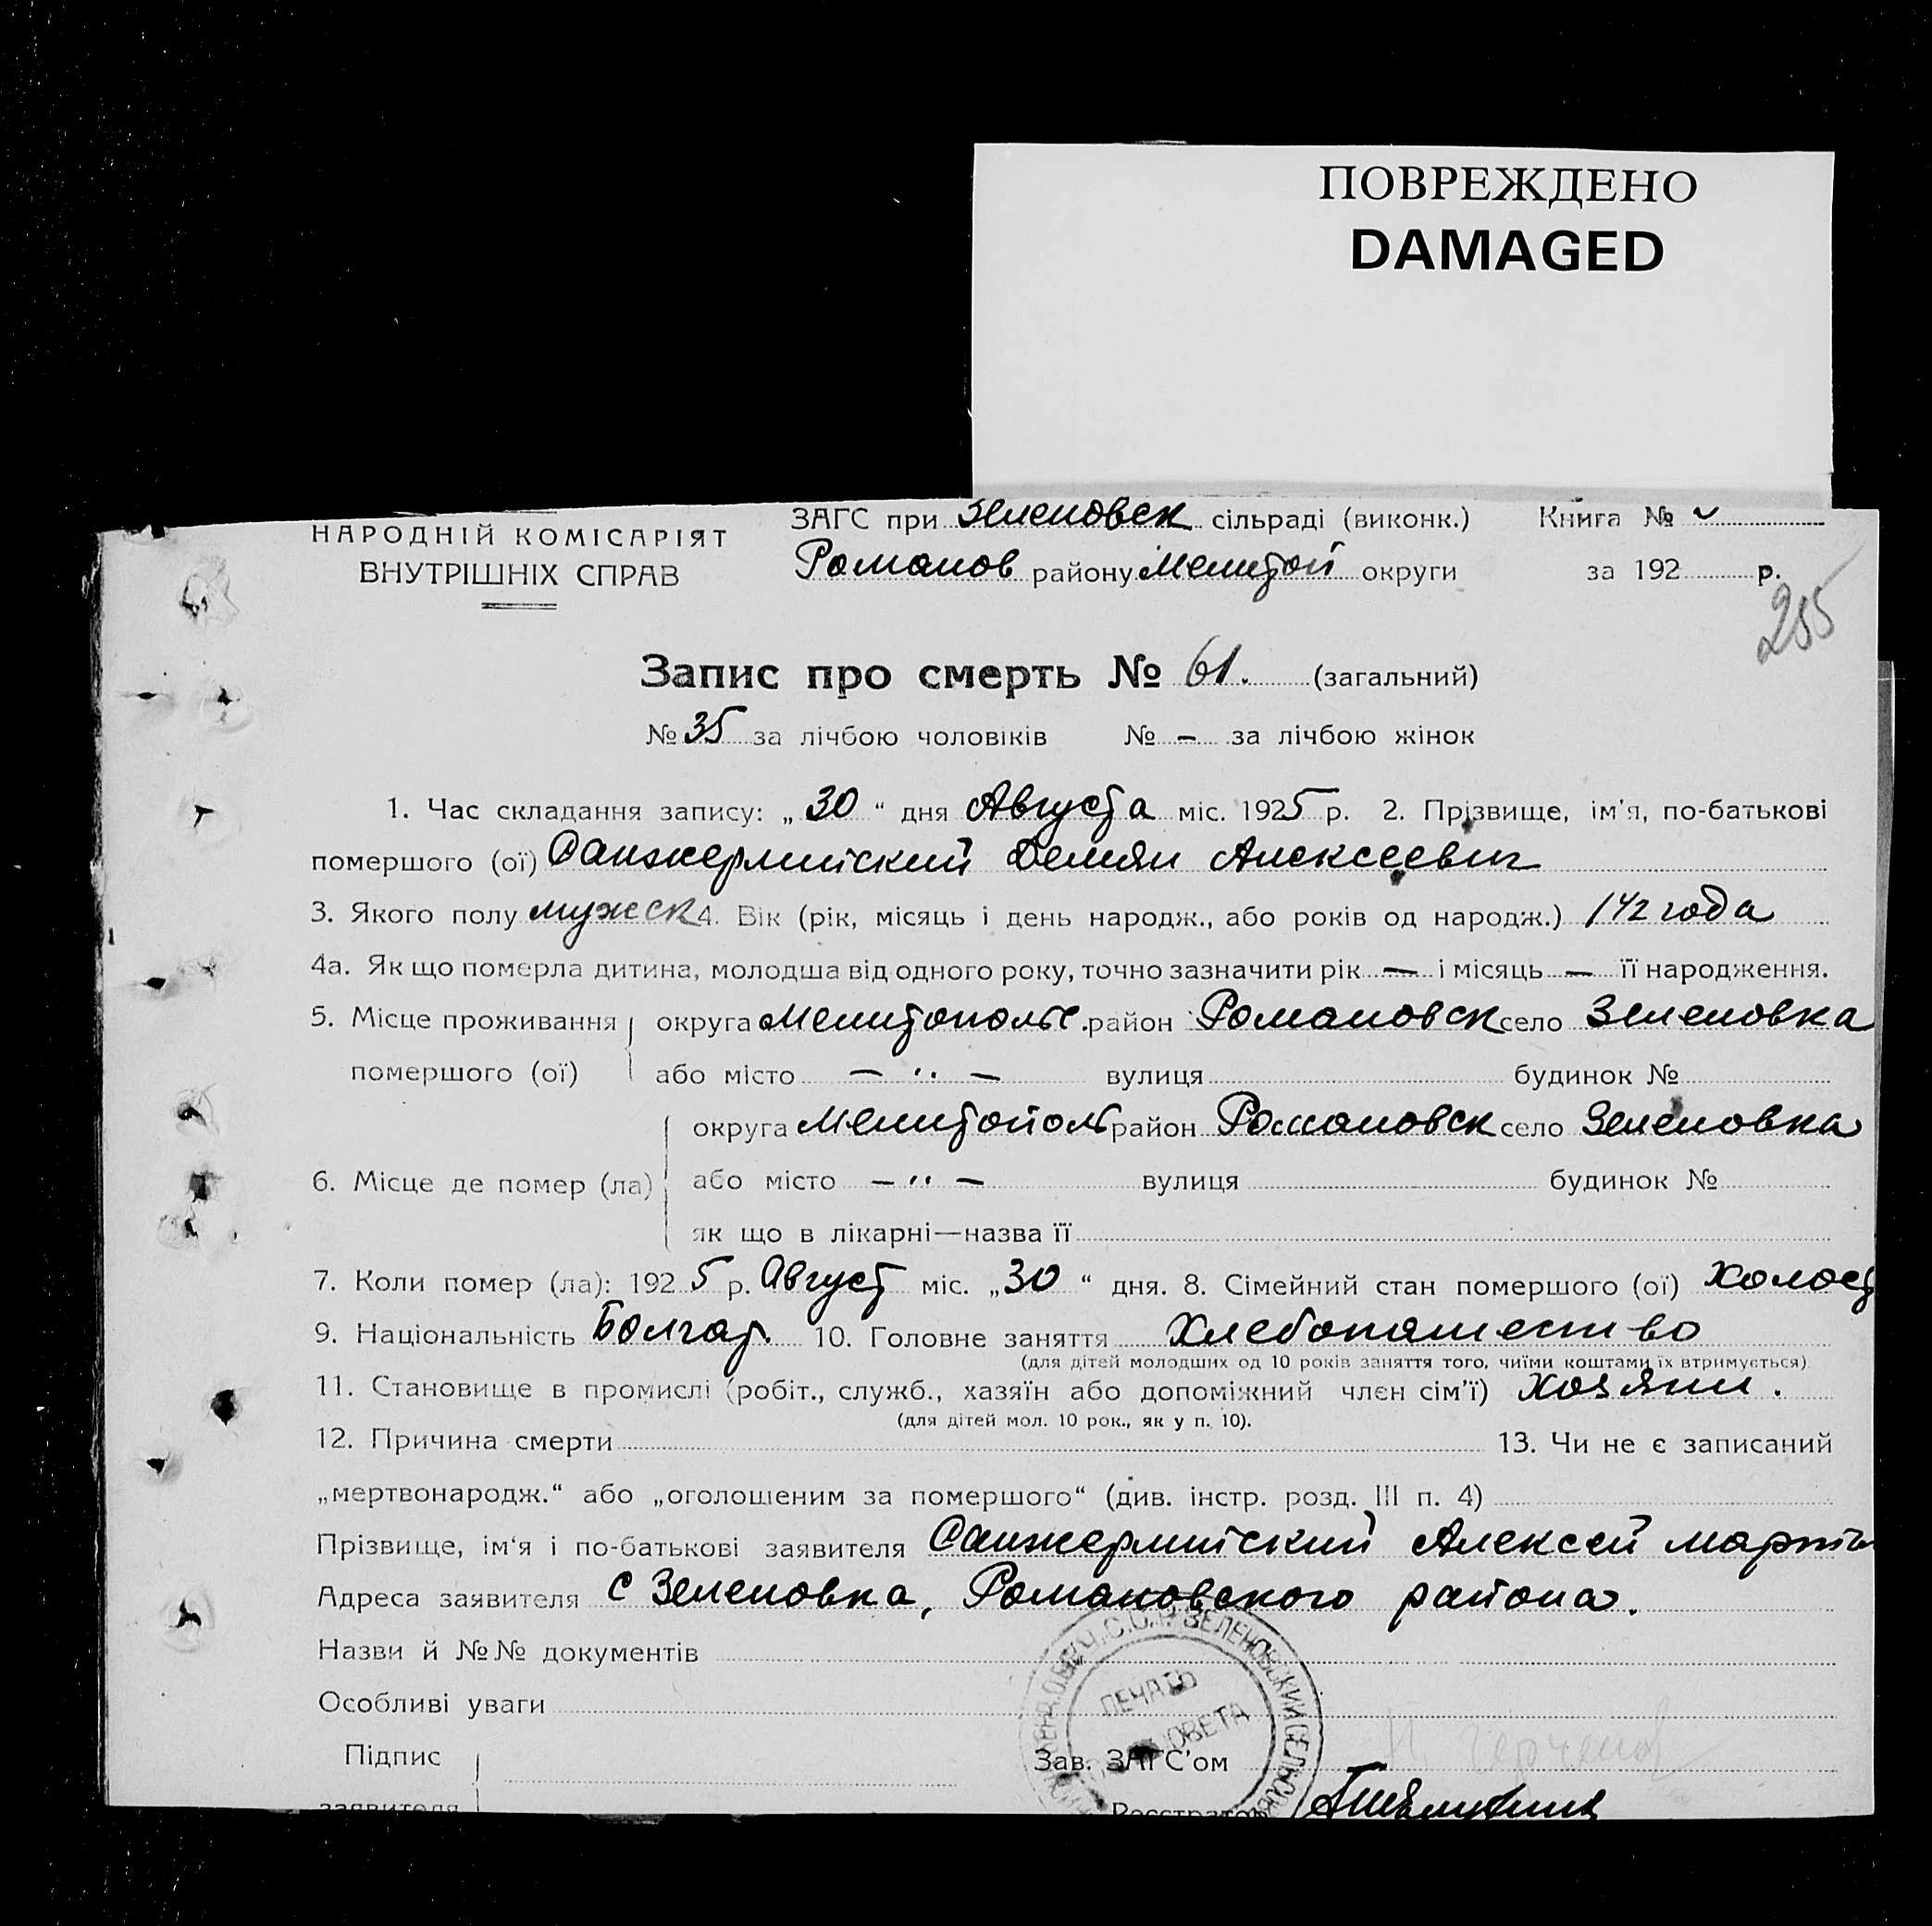 ПОВРЕЖДЕНО
DAMAGED
НАРОДНІЙ КОМІСАРІЯТ
ВНУТРІШНІХ СПРАВ
ЗАГС при Зеленовск сільраді (виконк.) Книга №
Романов району Мелитой округи за 192 р.
255
Запис про смерть № 61. (загальний)
№ 35 за лічбою чоловіків № – за лічбою жінок
1. Час складання запису: „ 30 “ дня Августа міс. 1925 р. 2. Прізвище, ім’я, по-батькові
помершого (ої) Санжермийский Демян Алексеевич
3. Якого полу мужеск 4. Вік (рік, місяць і день народж., або років од народж.) 1 1/2 года
4а. Як що померла дитина, молодша від одного року, точно зазначити рік — і місяць — її народження.
5. Місце проживання округа Мелитопольс. район Романовск село Зеленовка
помершого (ої) або місто — ·· — вулиця будинок №
округа Мелитополь район Романовск село Зеленовка
6. Місце де помер (ла) або місто — ·· — вулиця будинок №
як що в лікарні—назва її
7. Коли помер (ла): 1925 р. Август міс. „30 “ дня. 8. Сімейний стан помершого (ої) холост
9. Національність Болгар. 10. Головне заняття Хлебопашество
(для дітей молодших од 10 років заняття того, чиїми коштами їх втримується)
11. Становище в промислі (робіт., служб., хазяїн або допоміжний член сім’ї) хозяин.
(для дітей мол. 10 рок., як у п. 10).
12. Причина смерти 13. Чи не є записаний
„мертвонародж.“ або „оголошеним за помершого“ (див. інстр. розд. III п. 4)
Прізвище, ім‘я і по-батькові заявителя Санжермийский Алексей Мартин
Адреса заявителя с Зеленовка, Романовского района.
Назви й №№ документів
Особливі уваги
У.С.С.Р. ЗЕЛЕНОВСКИЙ
ПЕЧАТЬ
Підпис Зав. ЗАГС’ом
заявителя Реєстратор